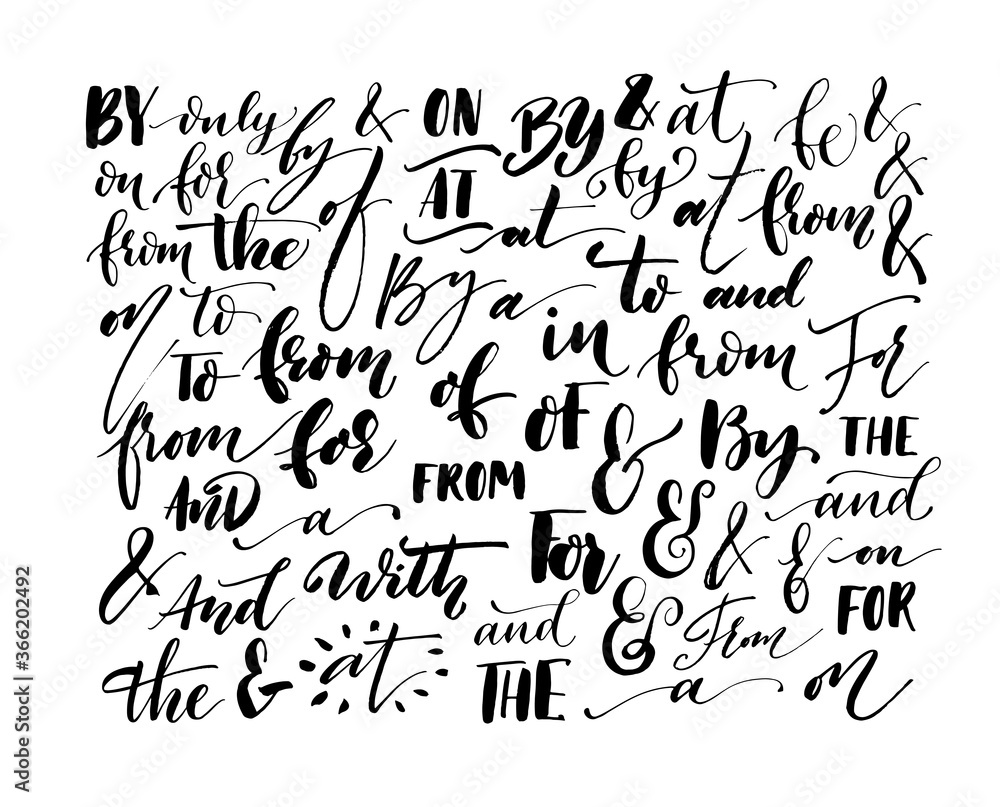 BY only by & ON BY & at be &
on for of AT by at from &
from the at &
on to By a to and
To from of in from For
from for of & By THE
AND a FROM and
& And with For & & & on
the & at and & From FOR
THE a on
Adobe Stock | #366202492